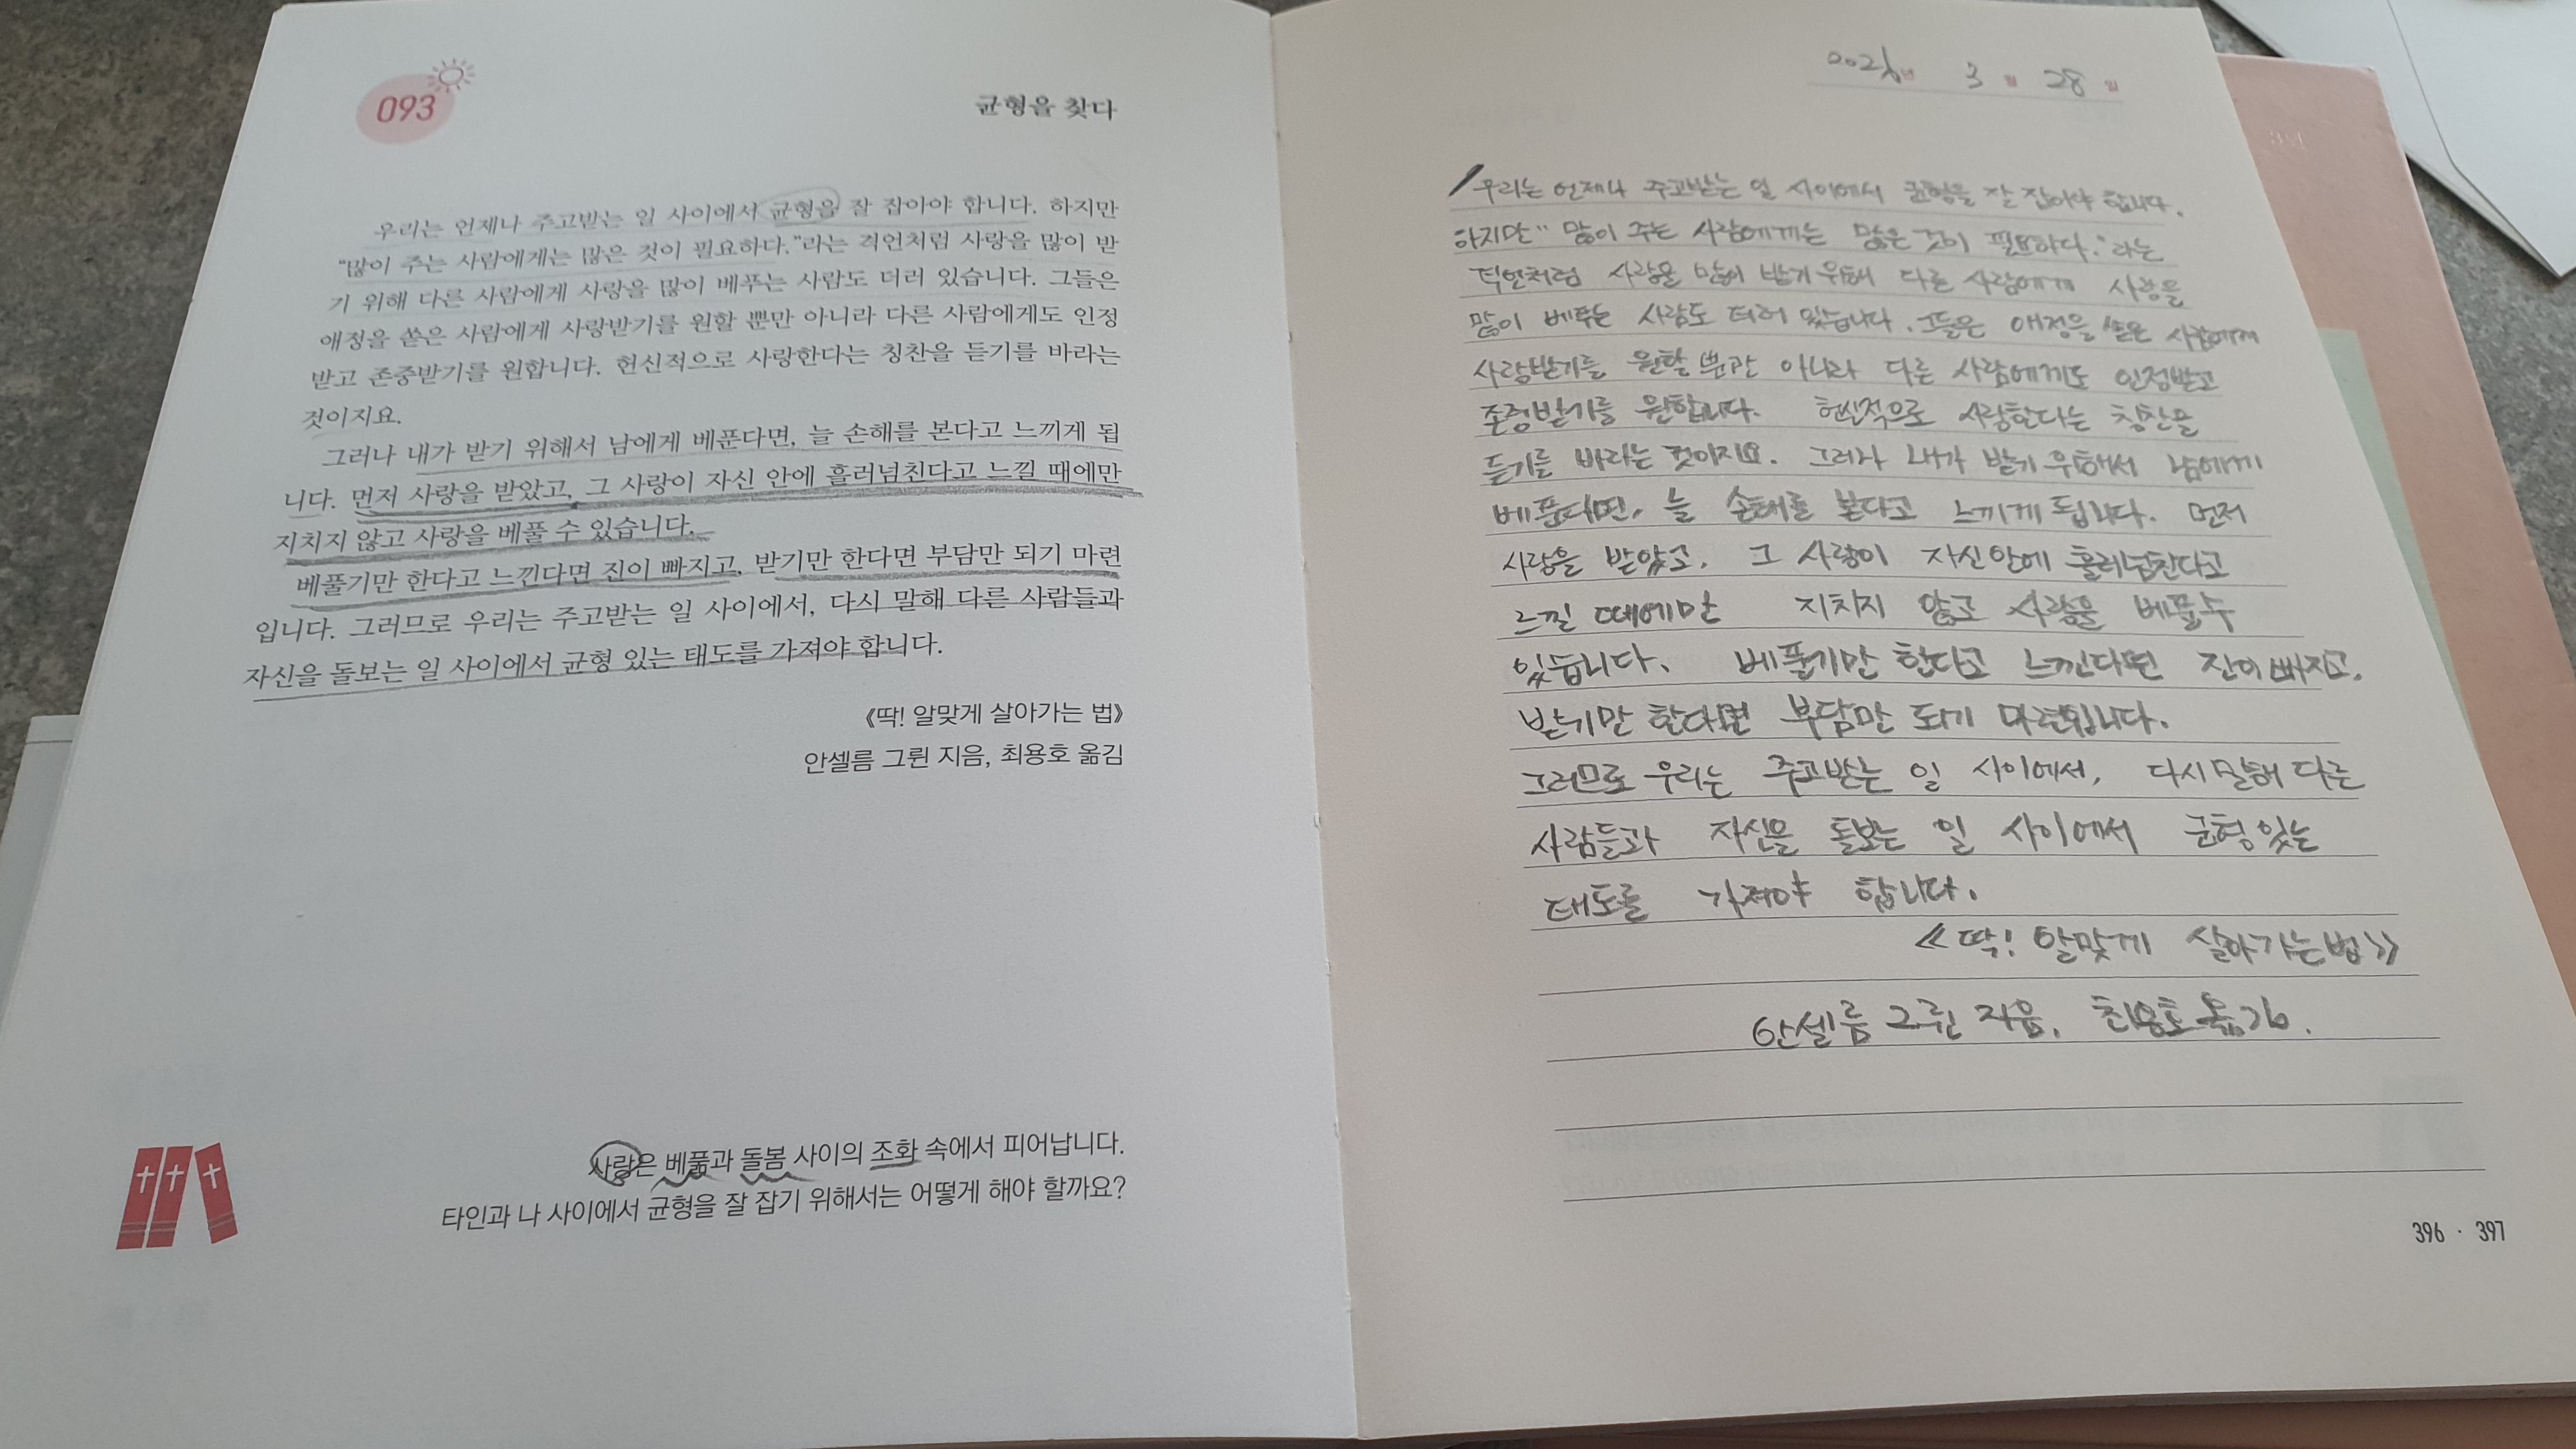 093
균형을 찾다
우리는 언제나 주고받는 일 사이에서 균형을 잘 잡아야 합니다. 하지만
“많이 주는 사람에게는 많은 것이 필요하다.”라는 격언처럼 사랑을 많이 받
기 위해 다른 사람에게 사랑을 많이 베푸는 사람도 더러 있습니다. 그들은
애정을 쏟은 사람에게 사랑받기를 원할 뿐만 아니라 다른 사람에게도 인정
받고 존중받기를 원합니다. 헌신적으로 사랑한다는 칭찬을 듣기를 바라는
것이지요.
그러나 내가 받기 위해서 남에게 베푼다면, 늘 손해를 본다고 느끼게 됩
니다. 먼저 사랑을 받았고, 그 사랑이 자신 안에 흘러넘친다고 느낄 때에만
지치지 않고 사랑을 베풀 수 있습니다.
베풀기만 한다고 느낀다면 진이 빠지고, 받기만 한다면 부담만 되기 마련
입니다. 그러므로 우리는 주고받는 일 사이에서, 다시 말해 다른 사람들과
자신을 돌보는 일 사이에서 균형 있는 태도를 가져야 합니다.
《딱! 알맞게 살아가는 법》
안셀름 그륀 지음, 최용호 옮김
사랑은 베풂과 돌봄 사이의 조화 속에서 피어납니다.
타인과 나 사이에서 균형을 잘 잡기 위해서는 어떻게 해야 할까요?
년 3월 28일
우리는 언제나 주고받는 일 사이에서 균형을 잘 잡아야 합니다.
하지만 “많이 주는 사람에게는 많은 것이 필요하다.”라는
격언처럼 사랑을 많이 받기 위해 다른 사람에게 사랑을
많이 베푸는 사람도 더러 있습니다. 그들은 애정을 쏟은 사람에게
사랑받기를 원할 뿐만 아니라 다른 사람에게도 인정받고
존중받기를 원합니다. 헌신적으로 사랑한다는 칭찬을
듣기를 바라는 것이지요. 그러나 내가 받기 위해서 남에게
베푼다면, 늘 손해를 본다고 느끼게 됩니다. 먼저
사랑을 받았고, 그 사랑이 자신 안에 흘러넘친다고
느낄 때에만 지치지 않고 사랑을 베풀 수
있습니다. 베풀기만 한다고 느낀다면 진이 빠지고,
받기만 한다면 부담만 되기 마련입니다.
그러므로 우리는 주고받는 일 사이에서, 다시 말해 다른
사람들과 자신을 돌보는 일 사이에서 균형 있는
태도를 가져야 합니다.
《딱! 알맞게 살아가는 법》
안셀름 그륀 지음, 최용호 옮김.
396 · 397